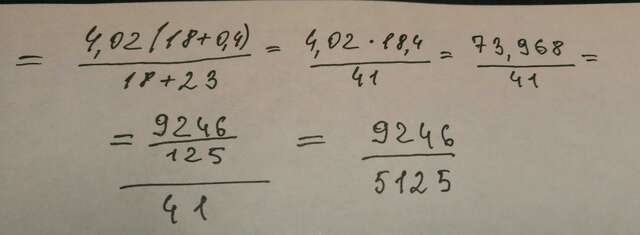 = 4,02(18+0,4)/18+23 = 4,02·18,4/41 = 73,968/41 =
= 9246/125/41 = 9246/5125